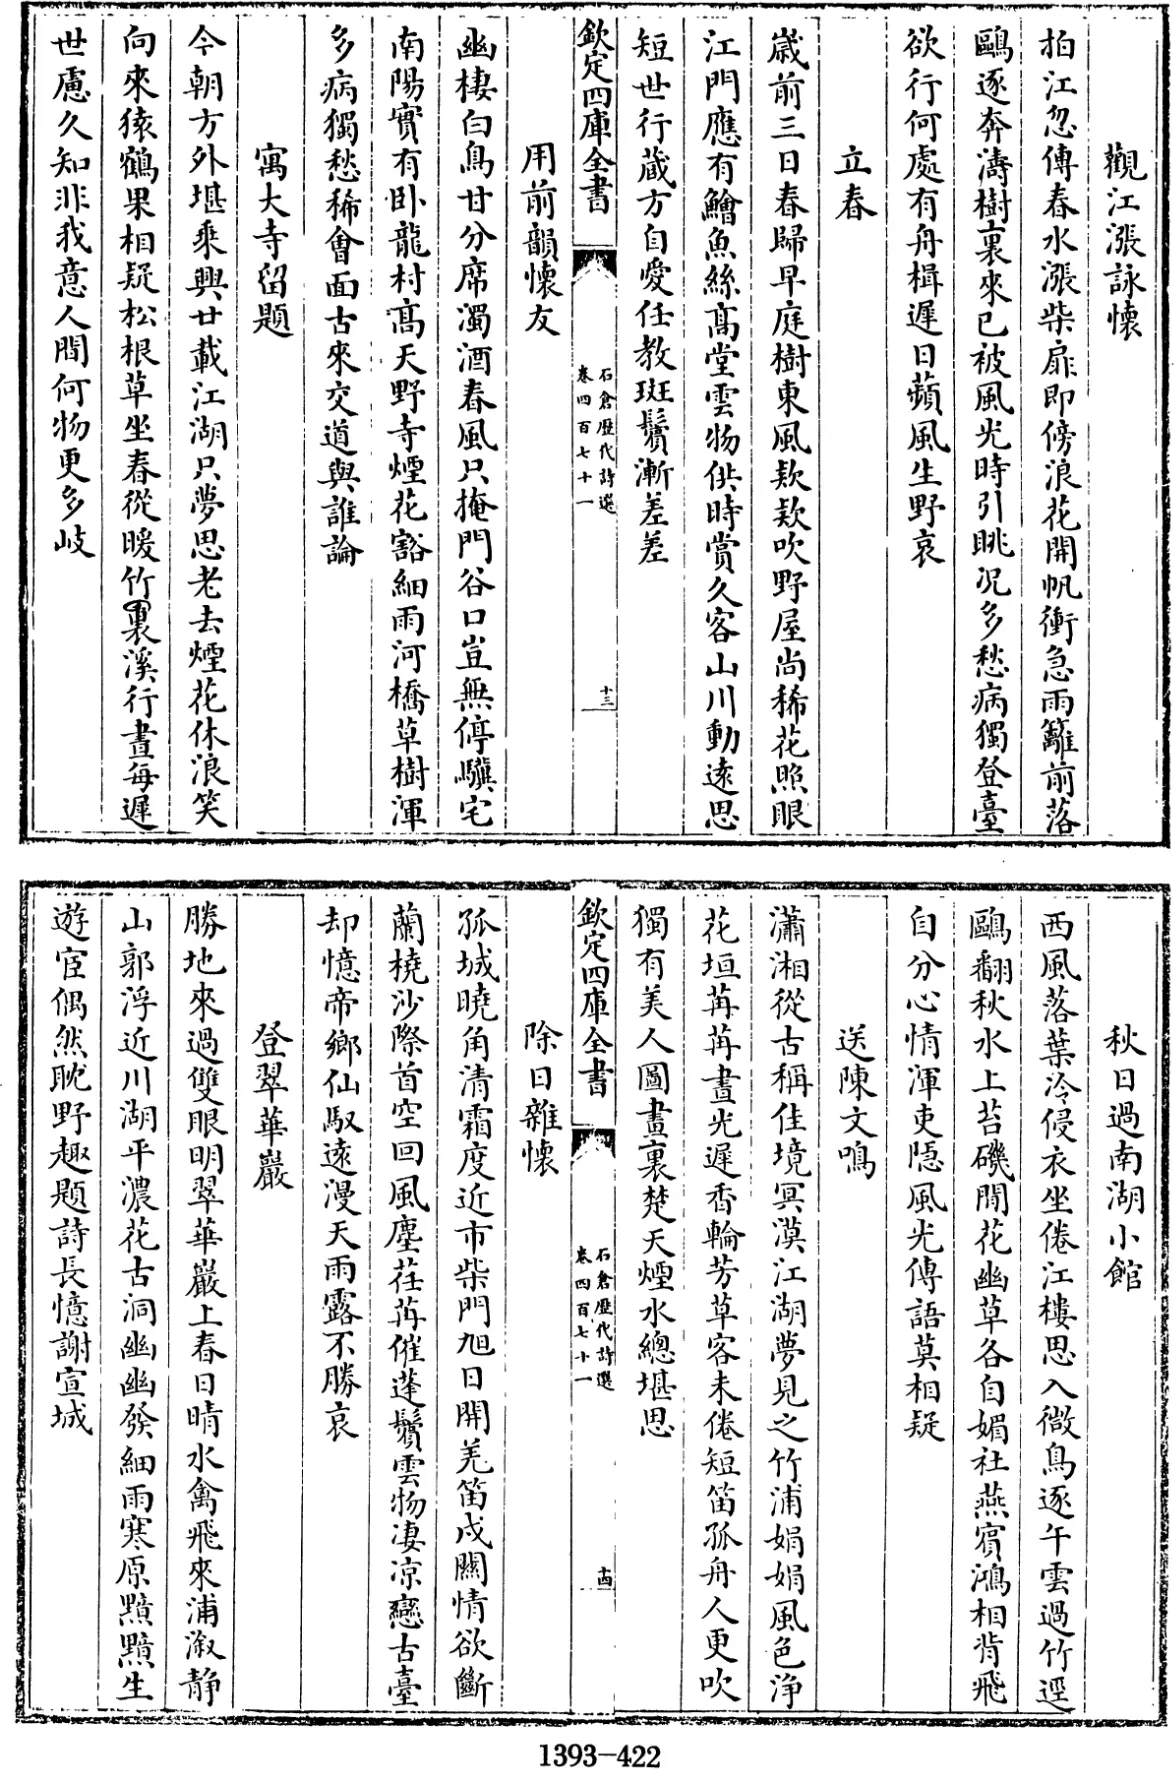 觀江漲詠懷
拍江忽傳春水漲柴扉即傍浪花開帆衝急雨籬前落
鷗逐奔濤樹裏來已被風光時引眺況多愁病獨登臺
欲行何處有舟楫遲日蘋風生野哀
立春
歲前三日春歸早庭樹東風欵欵吹野屋尚稀花照眼
江門應有鱠魚絲髙堂雲物供時賞久客山川動逺思
短世行蔵方自愛任教斑鬢漸差差
欽定四庫全書
石倉歷代詩選
卷四百七十一
十三
用前韻懷友
幽棲白鳥甘分席濁酒春風只掩門谷口豈無停驥宅
南陽實有卧龍村髙天野寺煙花豁細雨河橋草樹渾
多病獨愁稀會面古來交道與誰論
寓大寺留題
今朝方外堪乘興廿載江湖只夢思老去煙花休浪笑
向來猿鶴果相疑松根草坐春從暖竹裏溪行晝每遲
世慮久知非我意人間何物更多岐
秋日過南湖小館
西風落葉冷侵衣坐倦江樓思入微鳥逐午雲過竹逕
鷗翻秋水上苔磯閒花幽草各自媚社燕賓鴻相背飛
自分心情渾吏隱風光傳語莫相疑
送陳文鳴
瀟湘從古稱佳境冥漠江湖夢見之竹浦娟娟風色浄
花垣苒苒晝光遲香輪芳草客未倦短笛孤舟人更吹
獨有美人圖畫裏楚天煙水總堪思
欽定四庫全書
石倉歷代詩選
卷四百七十一
十四
除日雜懷
孤城曉角清霜度近市柴門旭日開羌笛戍關情欲斷
蘭橈沙際首空回風塵荏苒催蓬鬢雲物凄凉戀古臺
却憶帝鄉仙馭逺漫天雨露不勝哀
登翠華巖
勝地來過雙眼明翠華巖上春日晴水禽飛來浦漵静
山郭浮近川湖平濃花古洞幽幽發細雨寒原黯黯生
遊宦偶然耽野趣題詩長憶謝宣城
1393-422